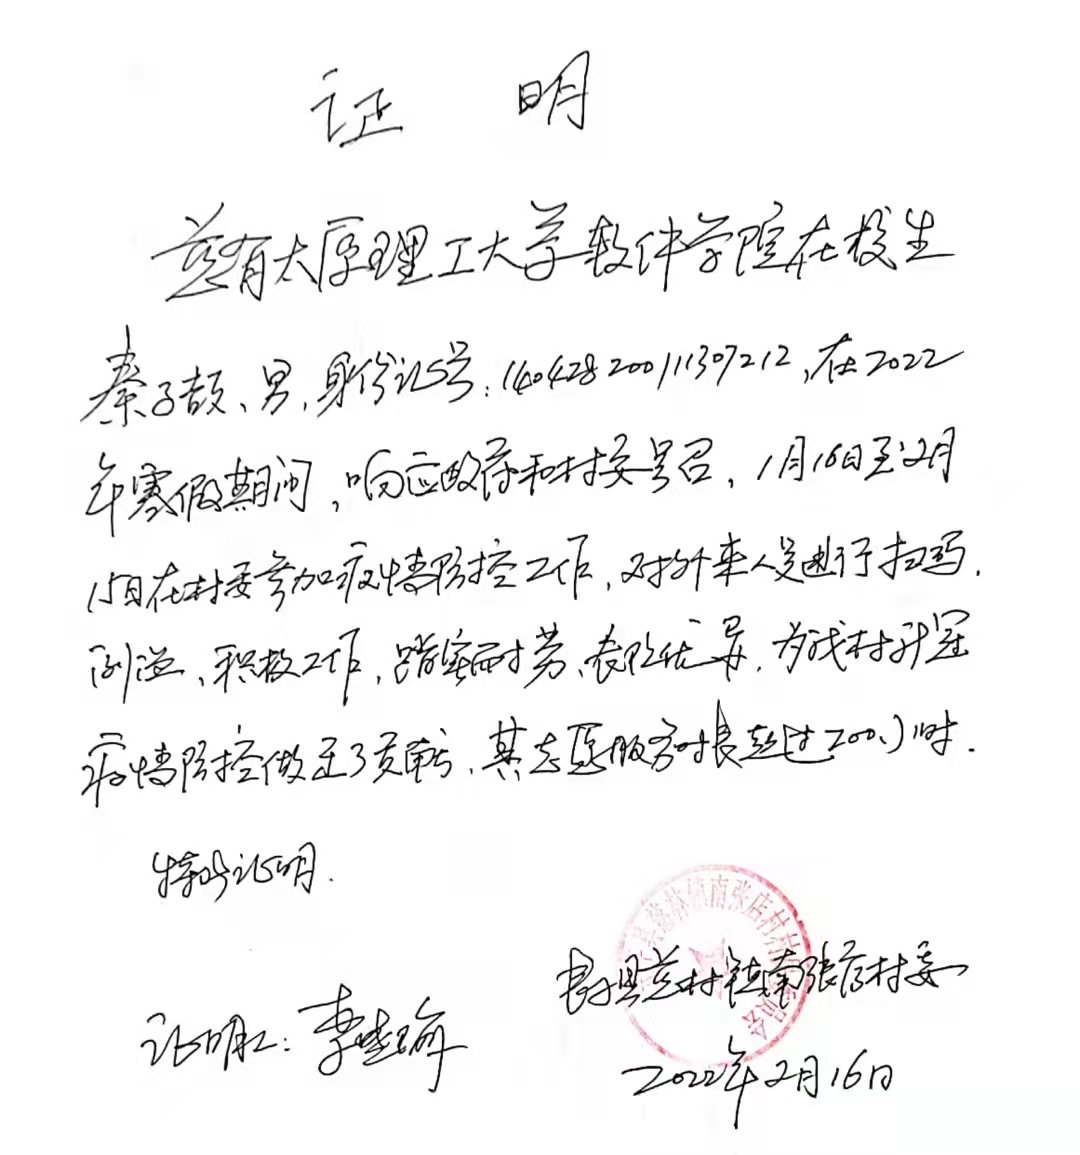 证 明
兹有太原理工大学软件学院在校生
秦子颉、男、身份证号:140428200111307212,在2022
年寒假期间,响应政府和村委号召,1月16日至2月
15日在村委参加疫情防控工作,对外来人员进行扫码、
测温、积极工作,踏实耐劳、表现优异,为我村新冠
疫情防控做足了贡献、其志愿服务时长超过200小时.
特此证明.
长子县慈林镇南张店村委
证明人:李
2022年2月16日
县慈林镇南张店村村 员会